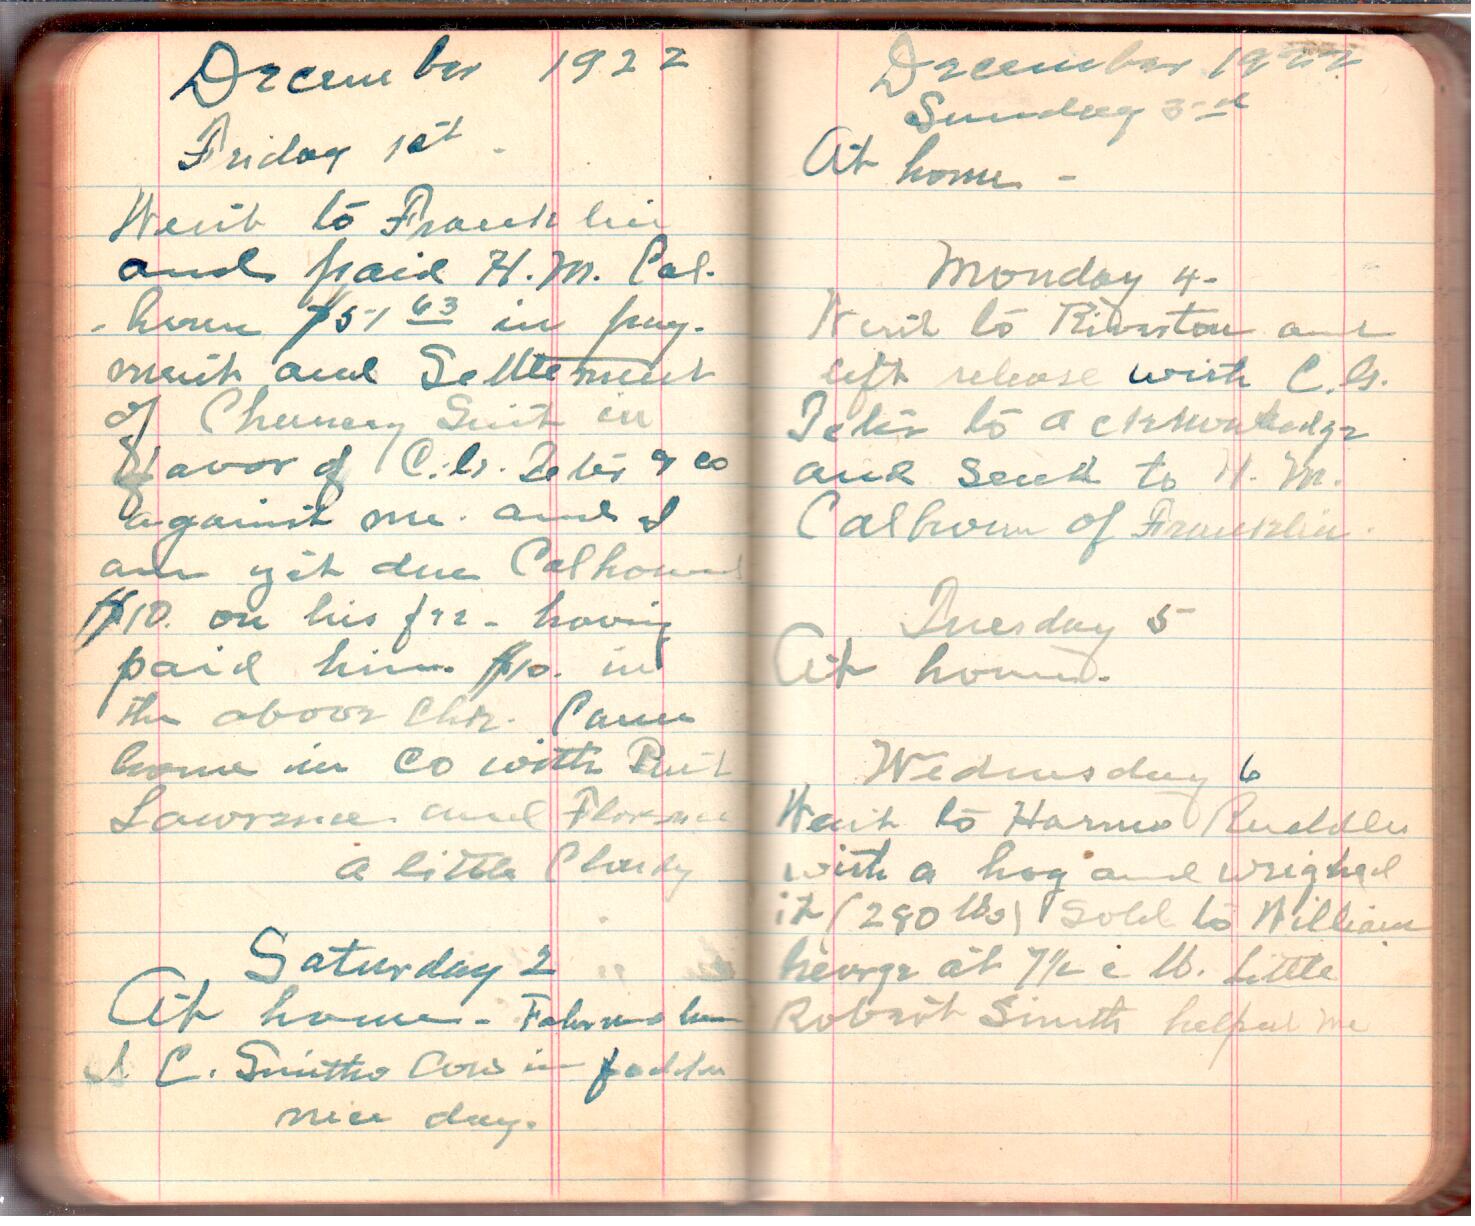 December 1922
Friday 1st.
Went to Franklin
and paid H. M. Cal-
-houn $51 63 in pay-
ment and Settlement
of Chancery Suit in
favor of C. G. Teter & co
against me. and I
am yet due Calhoun
$10. on his fee - having
paid him $10. in
the above Chk. Came
home in co with
Lawrence and Florence
a little Cloudy
Saturday 2
At home -
C. Smiths Cow in fodder
nice day.
December 1922
Sunday 3rd
At home -
Monday 4-
Went to Riverton and
left release with C. G.
Teter to acknowledge
and send to H. M.
Calhoun of Franklin.
Tuesday 5
At home.
Wednesday 6
Went to Ruddle
with a hog and weighed
it (280 lbs) Sold to William
George at 7½ c lb. Little
Robert Smith helped me